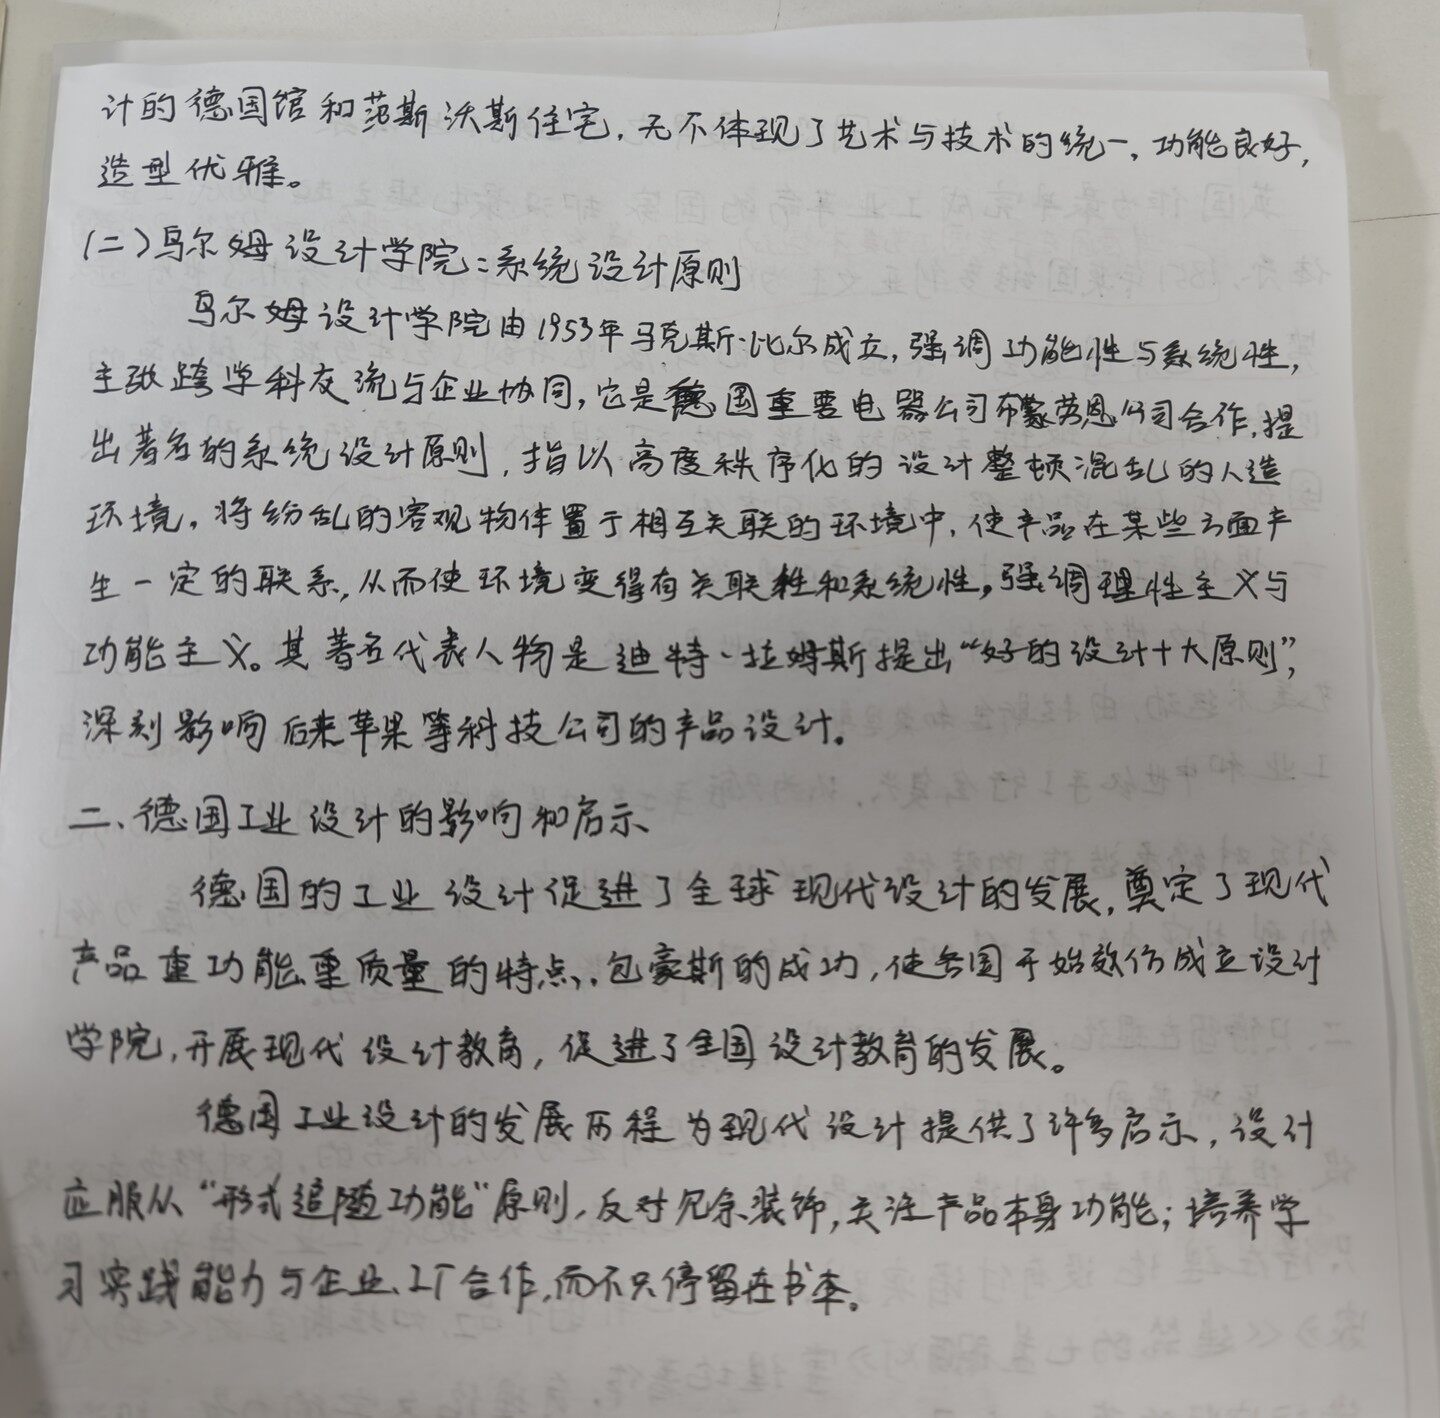 计的德国馆和范斯沃斯住宅，无不体现了艺术与技术的统一，功能良好，
造型优雅。
(二)乌尔姆设计学院：系统设计原则
乌尔姆设计学院由1953年马克斯·比尔成立，强调功能性与系统性，
主张跨学科交流与企业协同，它是德国重要电器公司布蒙劳恩公司合作，提
出著名的系统设计原则，指以高度秩序化的设计整顿混乱的人造
环境，将纷乱的客观物体置于相互关联的环境中，使产品在某些方面产
生一定的联系，从而使环境变得有关联性和系统性，强调理性主义与
功能主义。其著名代表人物是迪特·拉姆斯提出“好的设计十大原则”，
深刻影响后来苹果等科技公司的产品设计。
二、德国工业设计的影响和启示
德国的工业设计促进了全球现代设计的发展，奠定了现代
产品重功能重质量的特点，包豪斯的成功，使各国开始效仿成立设计
学院，开展现代设计教育，促进了全国设计教育的发展。
德国工业设计的发展历程为现代设计提供了许多启示，设计
应服从“形式追随功能”原则，反对冗余装饰，关注产品本身功能；培养学
习实践能力与企业、工厂合作，而不只停留在书本。